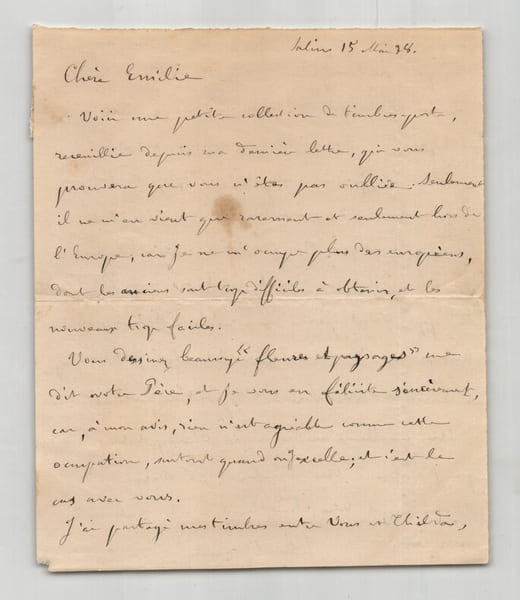 Salins 15 Mai 98.
Chère Emilie
Voici une petite collection de timbres-poste,
recueillie depuis ma dernière lettre, qui vous
prouvera que vous n'êtes pas oubliée. Seulement
il ne m'en vient que rarement et seulement hors de
l'Europe, car je ne m'occupe plus des européens,
dont les anciens sont trop difficiles à obtenir, et les
nouveaux trop faciles.
Vous dessinez beaucoup "fleurs et paysages" me
dit votre Père, et je vous en félicite sincèrement,
car, à mon avis, rien n'est agréable comme cette
occupation, surtout quand on y excelle, et c'est le
cas avec vous.
J'ai partagé mes timbres entre Vous et